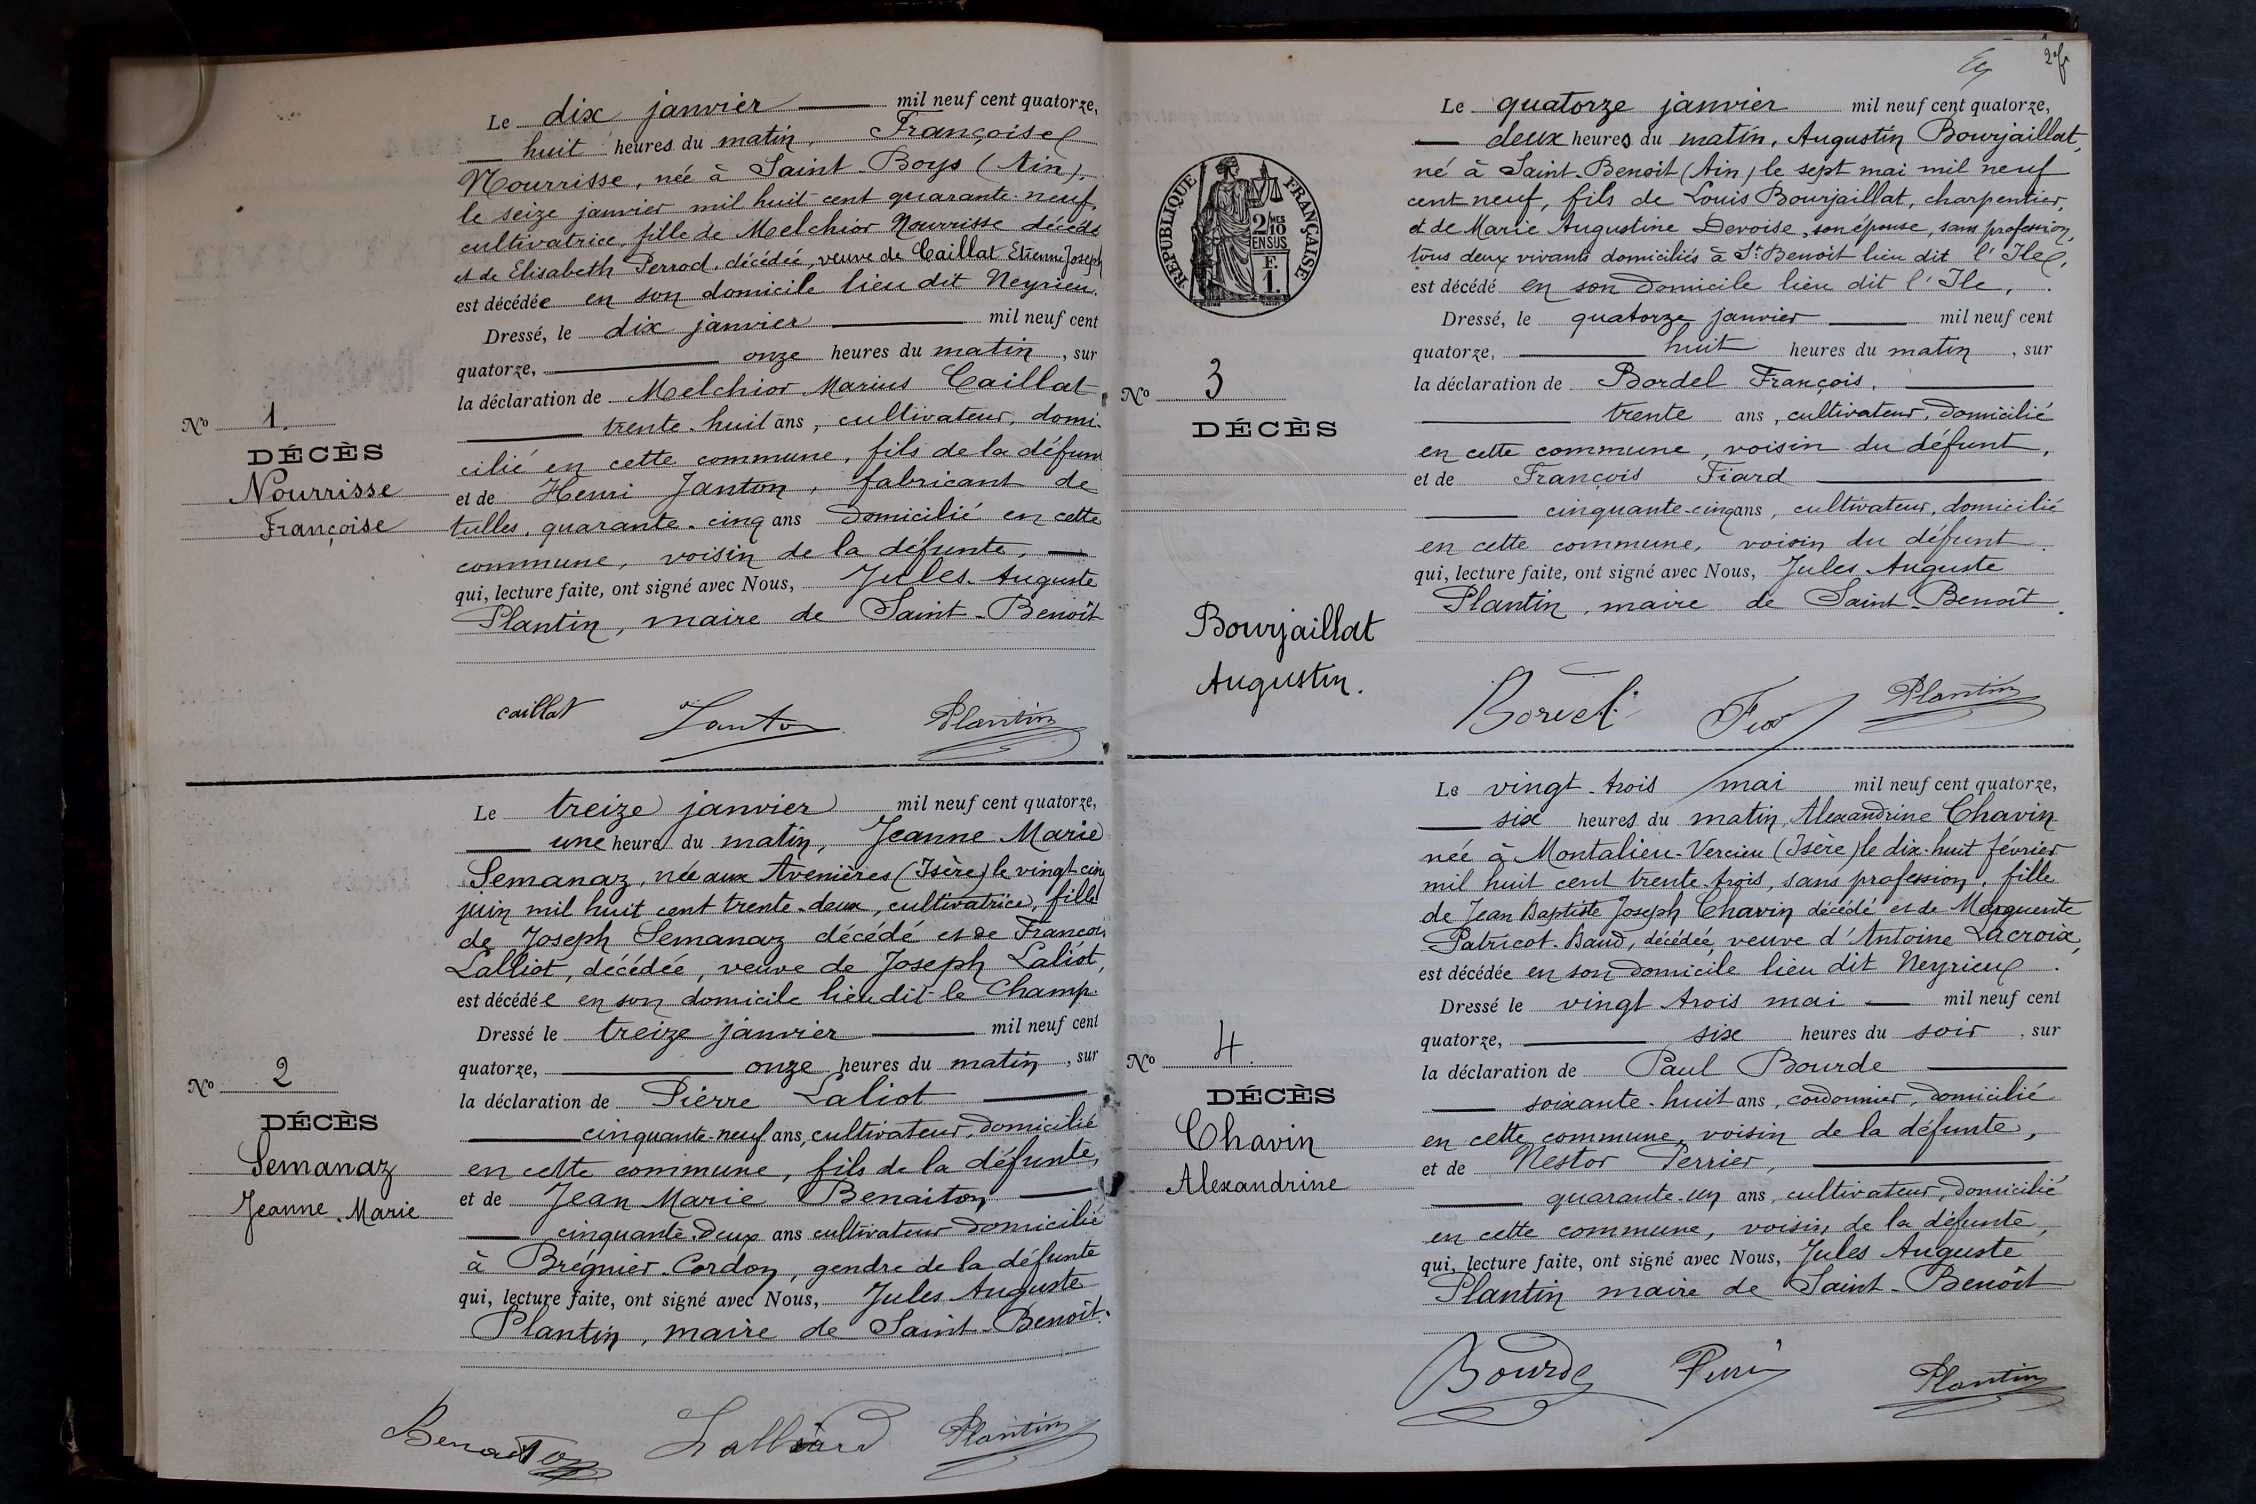 Le dix janvier mil neuf cent quatorze,
huit heures du matin, Françoise
Nourrisse, née à Saint-Boys (Ain),
le seize janvier mil huit cent quarante-neuf,
cultivatrice, fille de Melchior Nourrisse décédé
et de Elisabeth Perrod, décédée, veuve de Caillat Etienne Joseph
est décédée en son domicile lieu dit Neyrieu.
Dressé, le dix janvier mil neuf cent
quatorze, onze heures du matin, sur
la déclaration de Melchior Marius Caillat
trente-huit ans, cultivateur, domi-
cilié en cette commune, fils de la défunte
et de Henri Janton, fabricant de
tulles, quarante-cinq ans domicilié en cette
commune, voisin de la défunte,
qui, lecture faite, ont signé avec Nous, Jules Auguste
Plantin, maire de Saint-Benoît
No 1.
DÉCÈS
Nourrisse
Françoise
caillat Janton Plantin
Le treize janvier mil neuf cent quatorze,
une heure du matin, Jeanne Marie
Semanaz, née aux Avenières (Isère) le vingt cinq
juin mil huit cent trente-deux, cultivatrice, fille
de Joseph Semanaz décédé et de François
Lalliot, décédée, veuve de Joseph Laliot,
est décédée en son domicile lieu dit le Champ.
Dressé le treize janvier mil neuf cent
quatorze, onze heures du matin, sur
la déclaration de Pierre Laliot
cinquante-neuf ans, cultivateur, domicilié
en cette commune, fils de la défunte,
et de Jean Marie Benaiton
cinquante-deux ans cultivateur domicilié
à Brégnier-Cordon, gendre de la défunte
qui, lecture faite, ont signé avec Nous, Jules Auguste
Plantin, maire de Saint-Benoît.
No 2
DÉCÈS
Semanaz
Jeanne Marie
Benaiton Plantin
2
Le quatorze janvier mil neuf cent quatorze,
deux heures du matin, Augustin Bourjaillat,
né à Saint-Benoit (Ain) le sept mai mil neuf
cent neuf, fils de Louis Bourjaillat, charpentier,
et de Marie Augustine Devoise, son épouse, sans profession,
tous deux vivants domiciliés à St Benoit lieu dit l'Ile,
est décédé en son domicile lieu dit l'Ile,
Dressé, le quatorze janvier mil neuf cent
quatorze, huit heures du matin, sur
la déclaration de Bordel François,
trente ans, cultivateur, domicilié
en cette commune, voisin du défunt,
et de François Fiard
cinquante-cinq ans, cultivateur, domicilié
en cette commune, voisin du défunt.
qui, lecture faite, ont signé avec Nous, Jules Auguste
Plantin, maire de Saint-Benoît.
RÉPUBLIQUE FRANÇAISE
2/10 MES
EN SUS
F.
1.
No 3
DÉCÈS
Bourjaillat
Augustin.
Bordel Plantin
Le vingt-trois mai mil neuf cent quatorze,
six heures du matin, Alexandrine Chavin
née à Montalieu-Vercieu (Isère) le dix-huit février
mil huit cent trente-trois, sans profession, fille
de Jean Baptiste Joseph Chavin décédé et de Marguerite
Patricot-Baud, décédée, veuve d'Antoine Lacroix,
est décédée en son domicile lieu dit Neyrieu.
Dressé le vingt trois mai mil neuf cent
quatorze, six heures du soir, sur
la déclaration de Paul Bourde
soixante-huit ans, cordonnier, domicilié
en cette commune, voisin de la défunte,
et de Nestor Perrier,
quarante-un ans, cultivateur, domicilié
en cette commune, voisin de la défunte,
qui, lecture faite, ont signé avec Nous, Jules Auguste
Plantin maire de Saint-Benoît
No 4.
DÉCÈS
Chavin
Alexandrine
Bourde Plantin